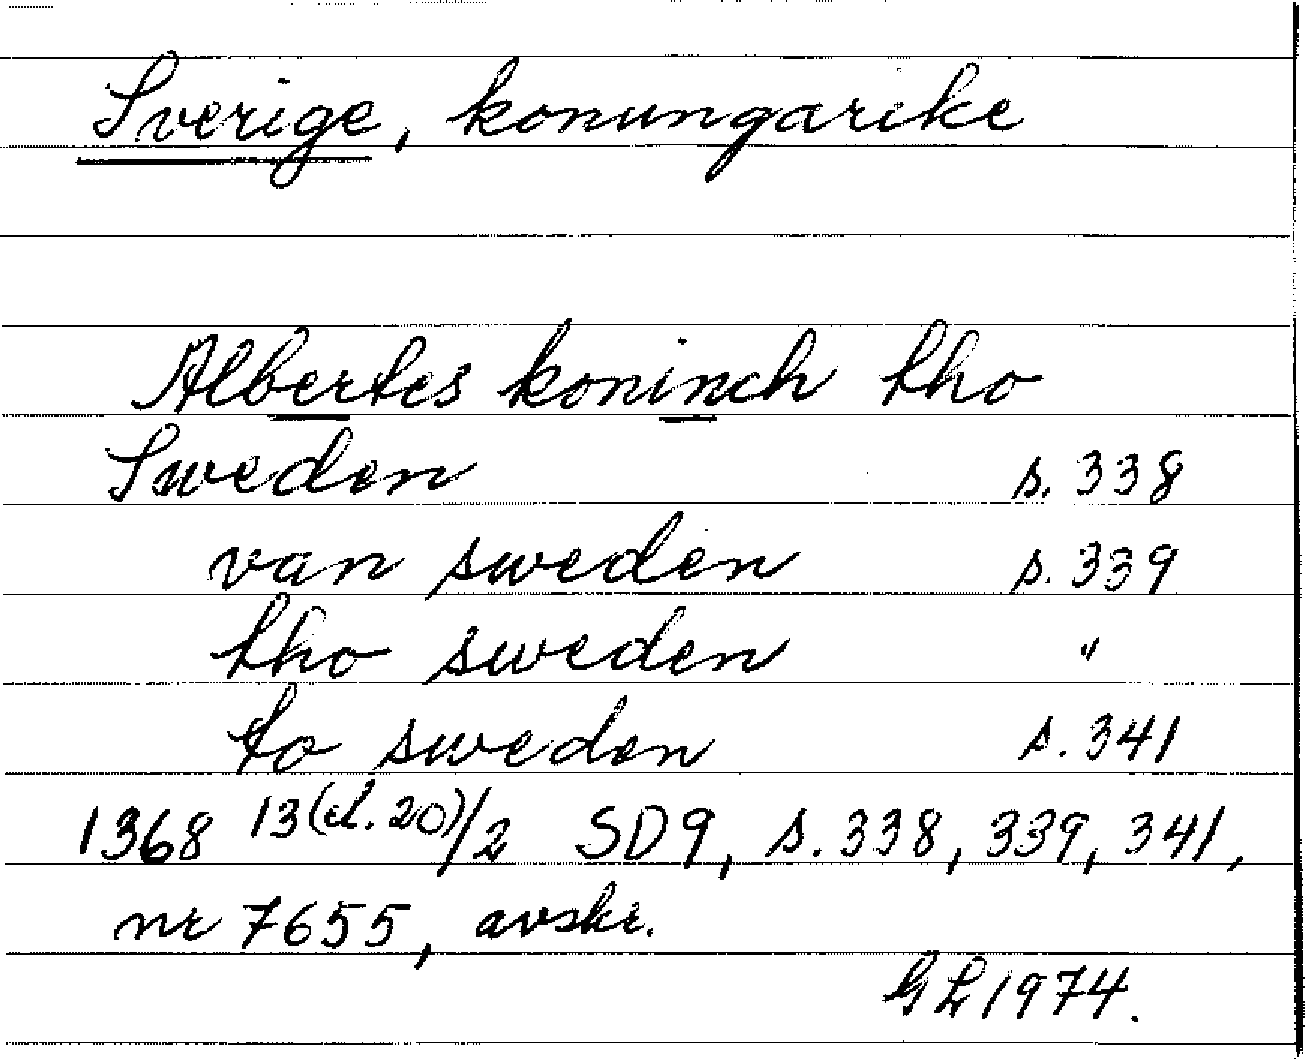 Sverige, konungarike
Albertes koninch tho
Sweden s. 338
van sweden s. 339
tho sweden "
to sweden s. 341
1368 13(el. 20)/2 SD9, s. 338, 339, 341,
nr 7655, avskr.
GL 1974.